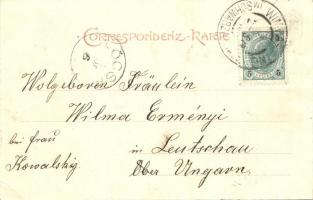 CORRESPONDENZ-KARTE
LŐCSE
5 5
Wolgeboren Fräulein
Wilma Erményi
bei Frau in Leutschau
Kowalsky. Ober Ungarn.